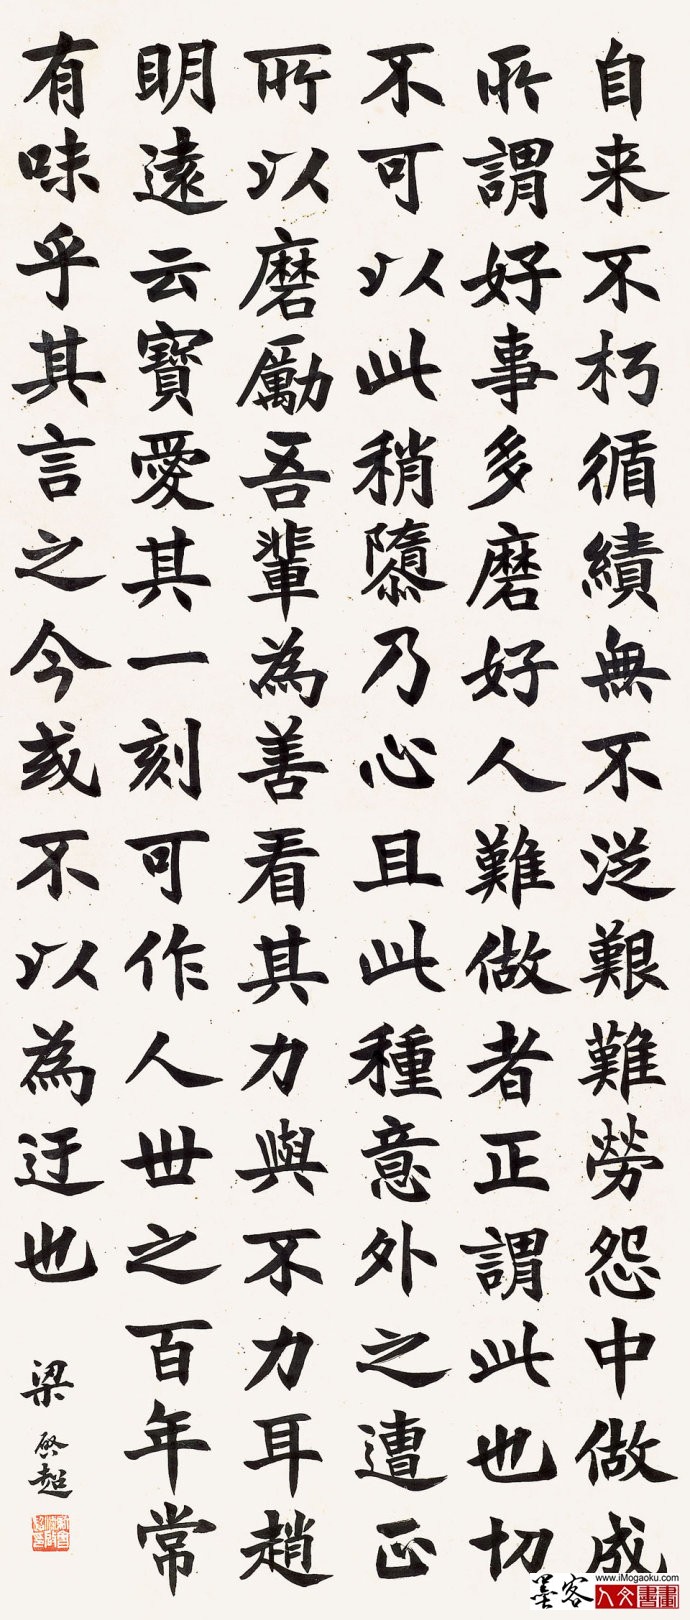 自来不朽循績無不泛艱難勞怨中做成
所謂好事多磨好人難做者正謂此也切
不可以此稍隳乃心且此種意外之遭正
所以磨勵吾輩為善看其力與不力耳趙
明遠云寶愛其一刻可作人世之百年常
有味乎其言之今或不以為迂也
梁啓超
墨客
www.iMogaoku.com
人文書畫